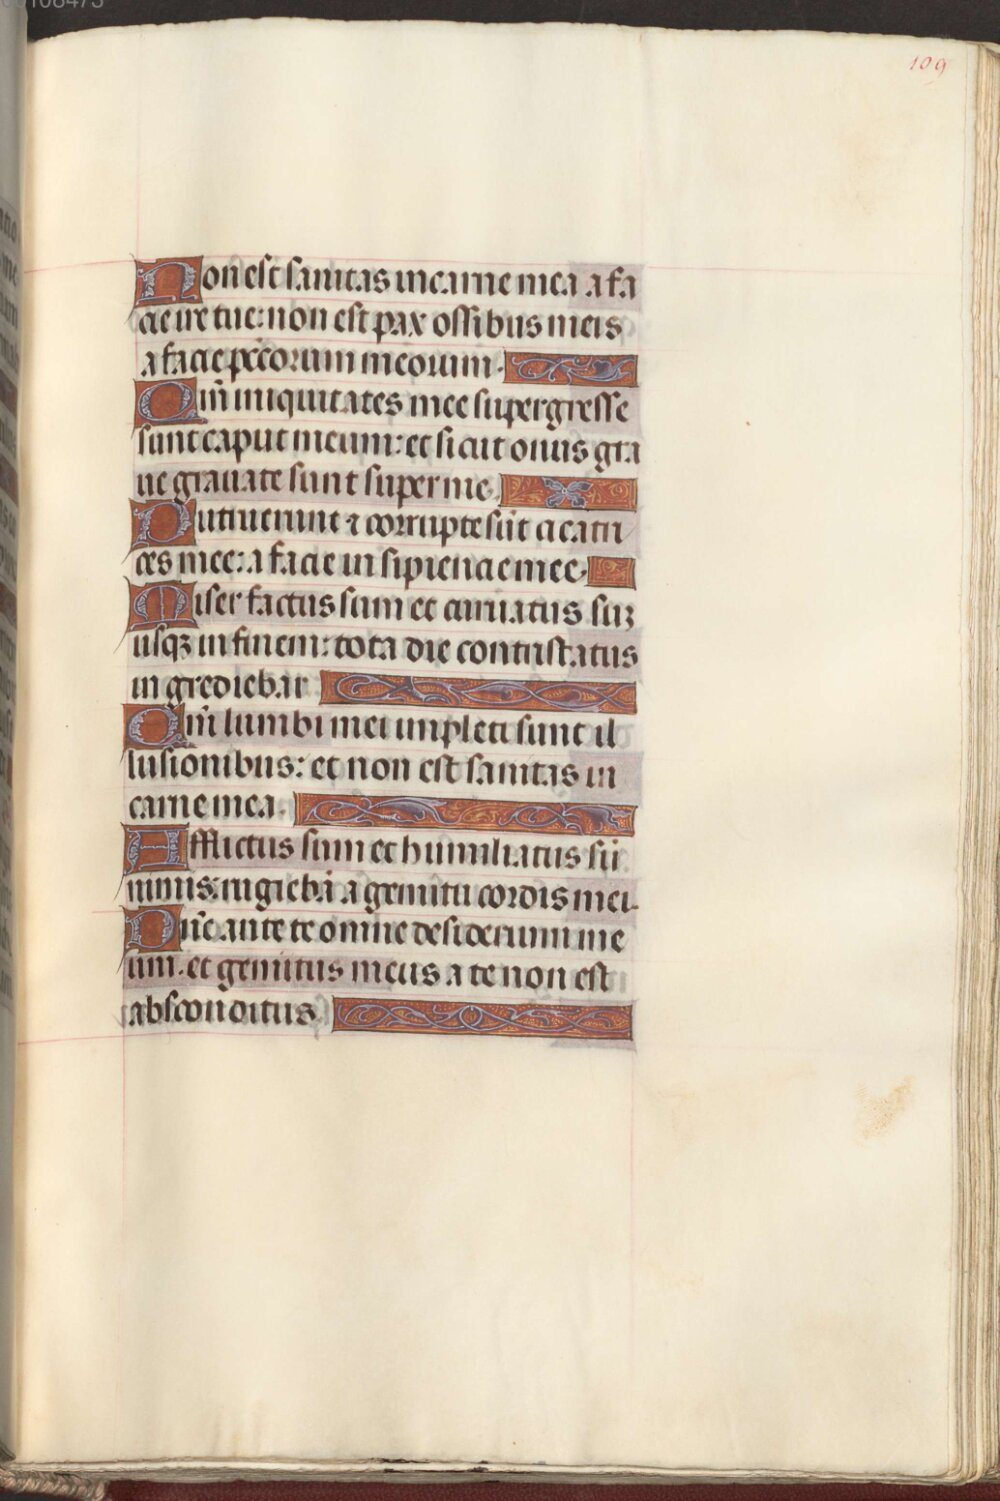 109
Non est sanitas in carne mea a fa
cie ire tue: non est pax ossibus meis
a facie pccorum meorum.
Qm̄ iniquitates mee supergresse
sunt caput meum: et sicut onus gra
ue grauate sunt super me.
Putruerunt ⁊ corrupte sūt cicatri
ces mee: a facie insipiencie mee.
Miser factus sum et curuatus suꝫ
usqꝫ in finem: tota die contristatus
ingrediebar
Qm̄ lumbi mei impleti sunt il
lusionibus: et non est sanitas in
carne mea.
Afflictus sum et humiliatus sū
nimis: rugiebā a gemitu cordis mei.
Dn̄e ante te omne desiderium me
um. et gemitus meus a te non est
absconditus